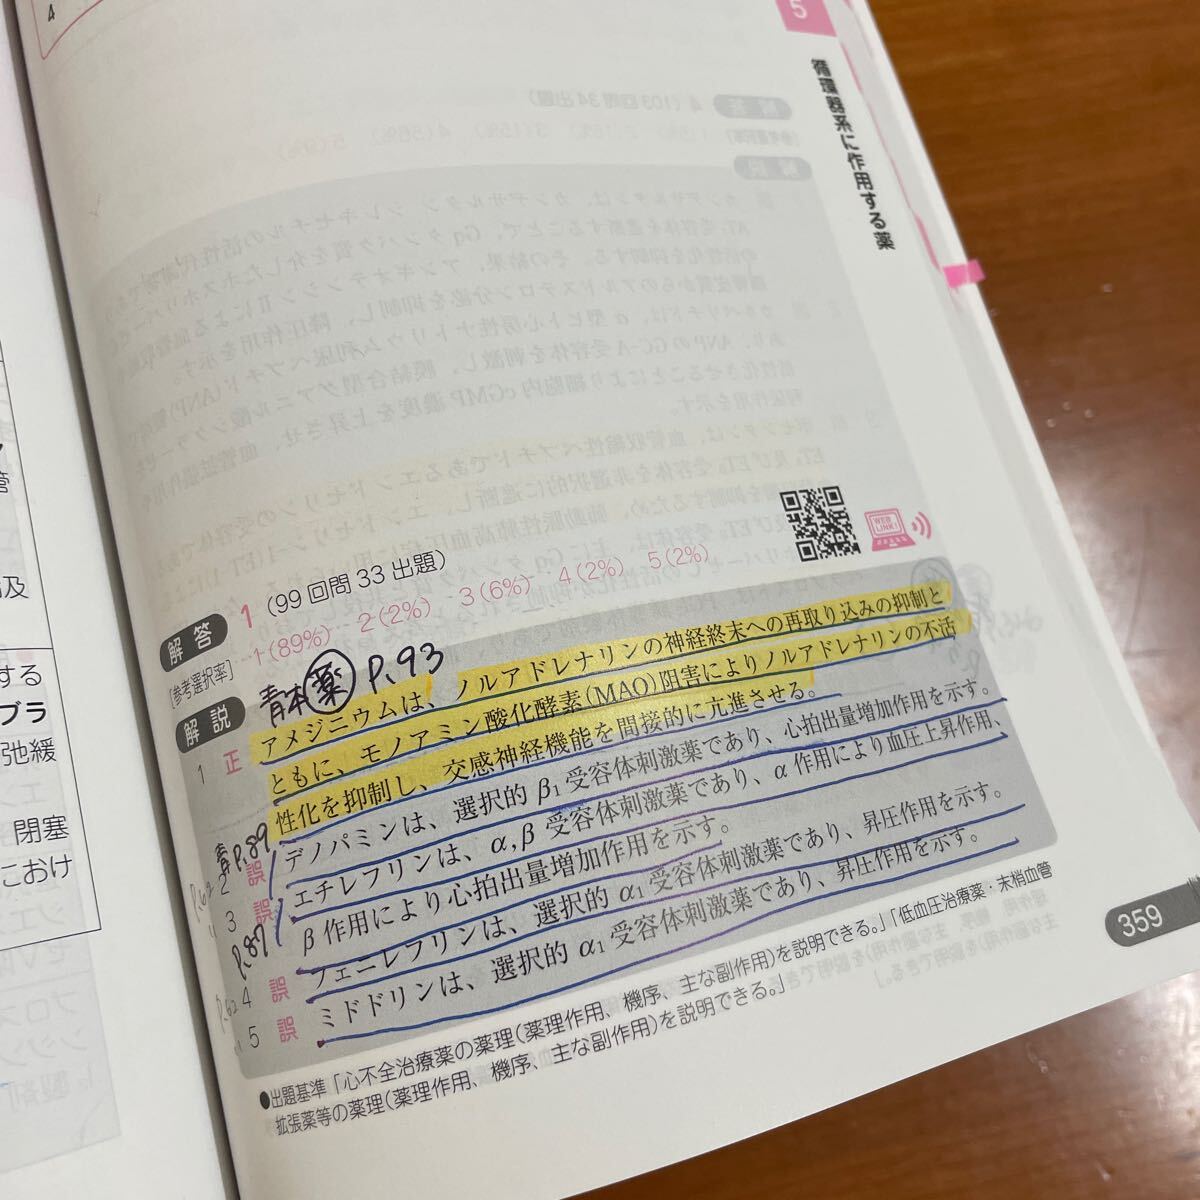 4
5
循環器系に作用する薬
WEB LINK!
解答 1 (99回問33出題)
[参考選択率] 1(89%) 2(2%) 3(6%) 4(2%) 5(2%)
青本薬 P.93
解説
1 正 アメジニウムは、ノルアドレナリンの神経終末への再取り込みの抑制と
ともに、モノアミン酸化酵素(MAO)阻害によりノルアドレナリンの不活
性化を抑制し、交感神経機能を間接的に亢進させる。
青P.89
2 誤 デノパミンは、選択的β1受容体刺激薬であり、心拍出量増加作用を示す。
3 誤 エチレフリンは、α,β受容体刺激薬であり、α作用により血圧上昇作用、
β作用により心拍出量増加作用を示す。
P.87
4 誤 フェニレフリンは、選択的α1受容体刺激薬であり、昇圧作用を示す。
5 誤 ミドドリンは、選択的α1受容体刺激薬であり、昇圧作用を示す。
●出題基準「心不全治療薬の薬理(薬理作用、機序、主な副作用)を説明できる。」「低血圧治療薬・末梢血管
拡張薬等の薬理(薬理作用、機序、主な副作用)を説明できる。」
359
管
及
する
ブラ
弛緩
閉塞
におけ